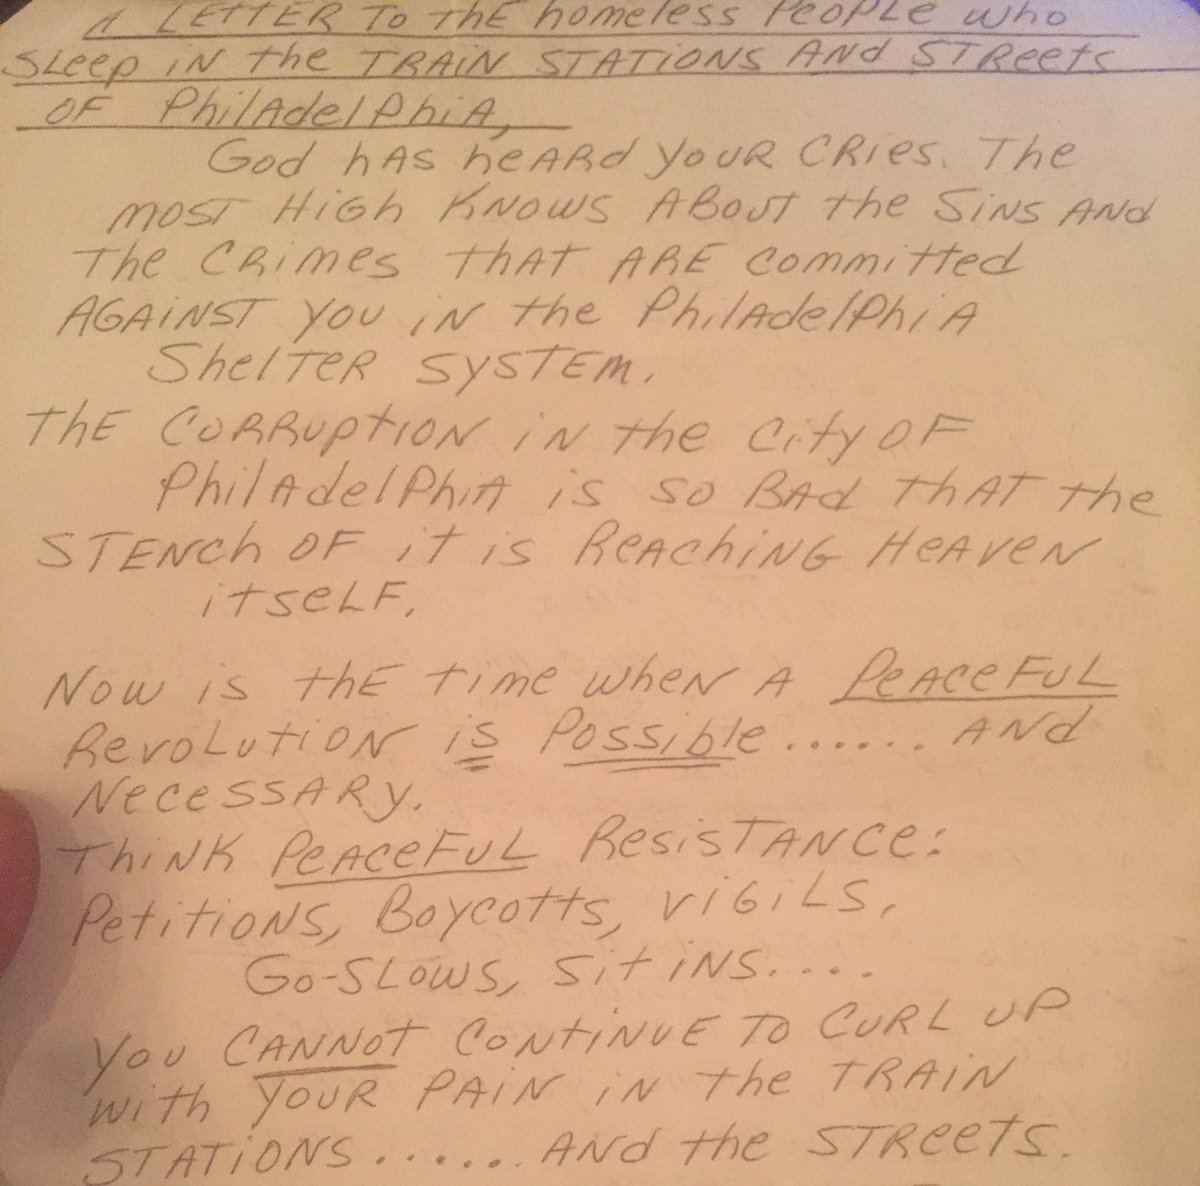 A LETTER TO THE homeless PEOPLE who
SLeep iN the TRAiN STATiONS ANd STReets
OF PhilAdelPhiA,
God hAS heARd YOUR CRies. The
MOST HiGh KNOWS ABOUT the SiNS ANd
The CRimes thAT ARE committed
AGAiNST YOU iN the PhilAdelPhiA
ShelTER SYSTEM.
ThE CORRuptiON iN the City OF
PhilAdelPhiA is SO BAd thAT the
STENch OF it is ReAChiNG HeAVeN
itSeLF.
NOW is thE time wheN A PeACeFUL
RevOLUtiON is POSSible...... ANd
NeceSSARy.
ThiNK PeACeFUL ResiSTANCe:
PetitiONS, BOycotts, ViGiLS,
GO-SLOWS, Sit iNS....
YOU CANNOt CONtiNUE TO CURL UP
with YOUR PAiN iN the TRAiN
STATiONS...... ANd the STReets.